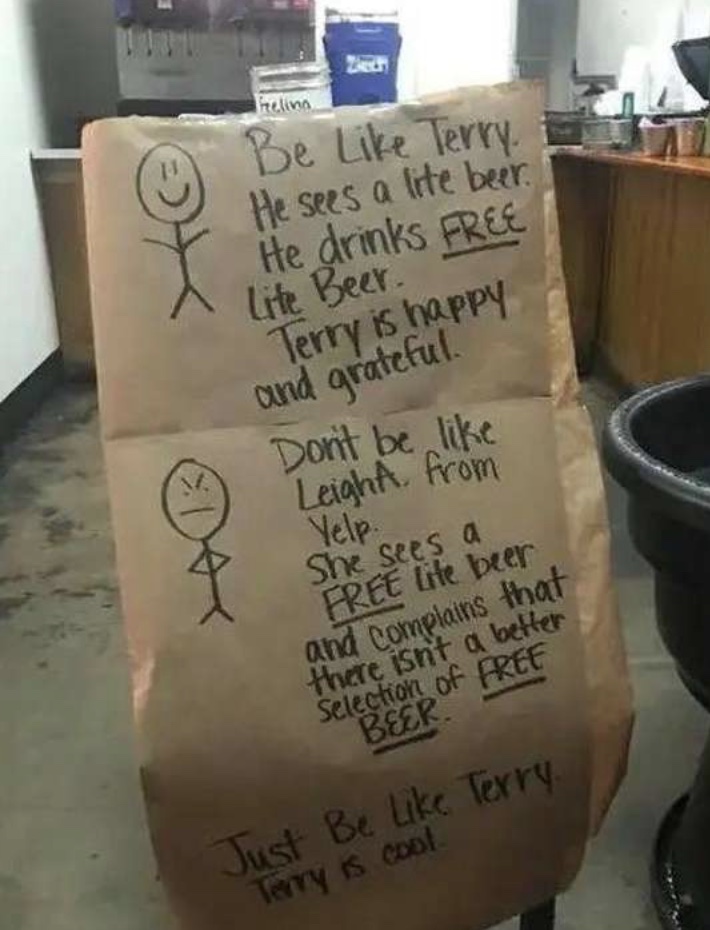 Be Like Terry.
He sees a lite beer.
He drinks FREE
Lite Beer.
Terry is happy
and grateful.
Don't be like
LeighA. from
Yelp.
She sees a
FREE Lite beer
and complains that
there isn't a better
selection of FREE
BEER.
Just Be Like Terry.
Terry is cool.